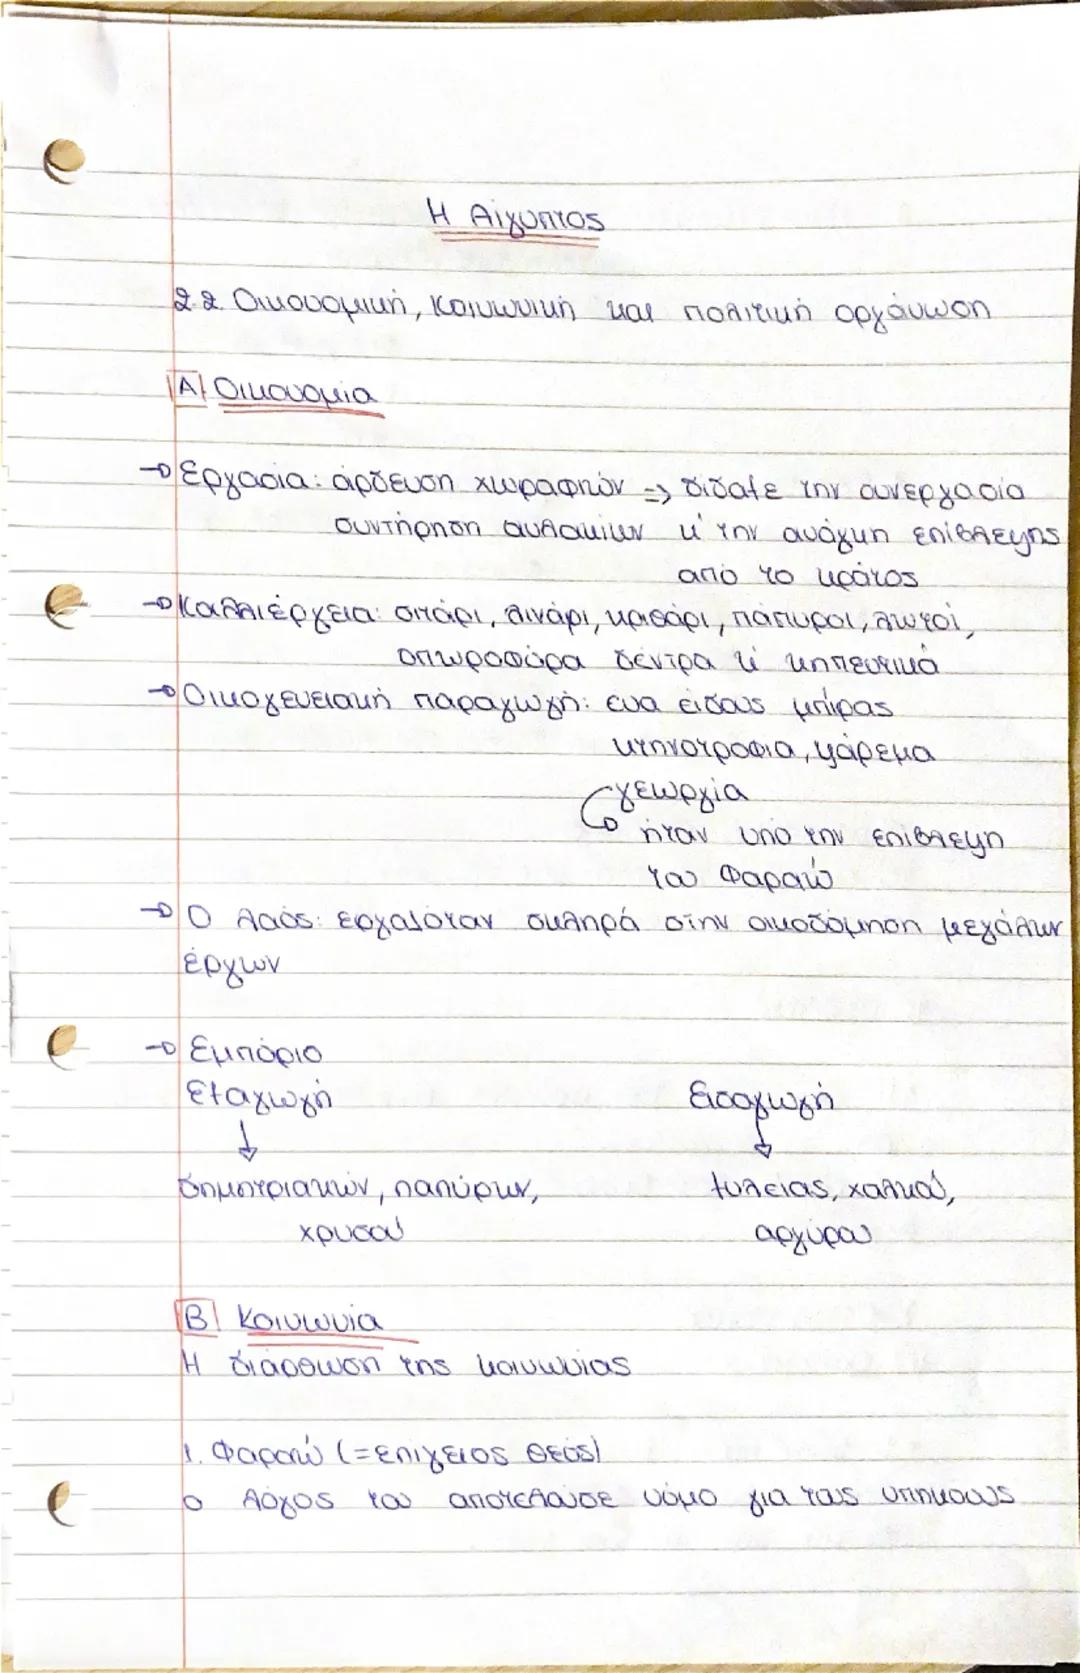 Η Αίγυπτος
2.2. Οικονομική, κοινωνική και πολιτική οργάνωση
Α Οικονομία
→ Εργασία: άρδευση χωραφιών => δίδαξε την συνεργασία
συντήρηση αυλακιών κ' την ανάγκη επίβλεψης
από το κράτος
→ Καλλιέργεια: σιτάρι, λινάρι, κριθάρι, πάπυροι, λωτοί,
οπωροφόρα δέντρα κ' κηπευτικά
→ Οικογενειακή παραγωγή: ενα είδους μπίρας
κτηνοτροφια, ψάρεμα
γεωργία
ήταν υπό την επίβλεψη
του Φαραώ
→ Ο λαός: εργαζόταν σκληρά στην οικοδόμηση μεγάλων
έργων
→ Εμπόριο
Εξαγωγή Εισαγωγή
↓ ↓
δημητριακών, παπύρων, ξυλείας, χαλκού,
χρυσού αργύρου
Β Κοινωνία
Η διάρθωση της κοινωνίας
1. Φαραώ (=επίγειος θεός)
ο λόγος του αποτελούσε νόμο για τους υπηκοους